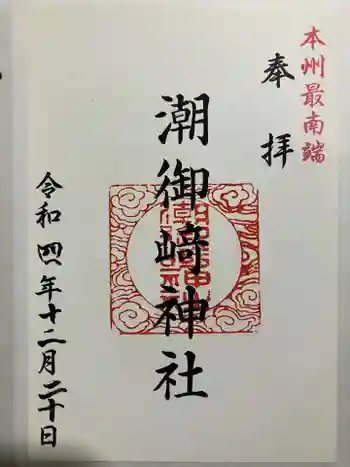 本州最南端
奉拝
潮御﨑神社
令和四年十二月二十日